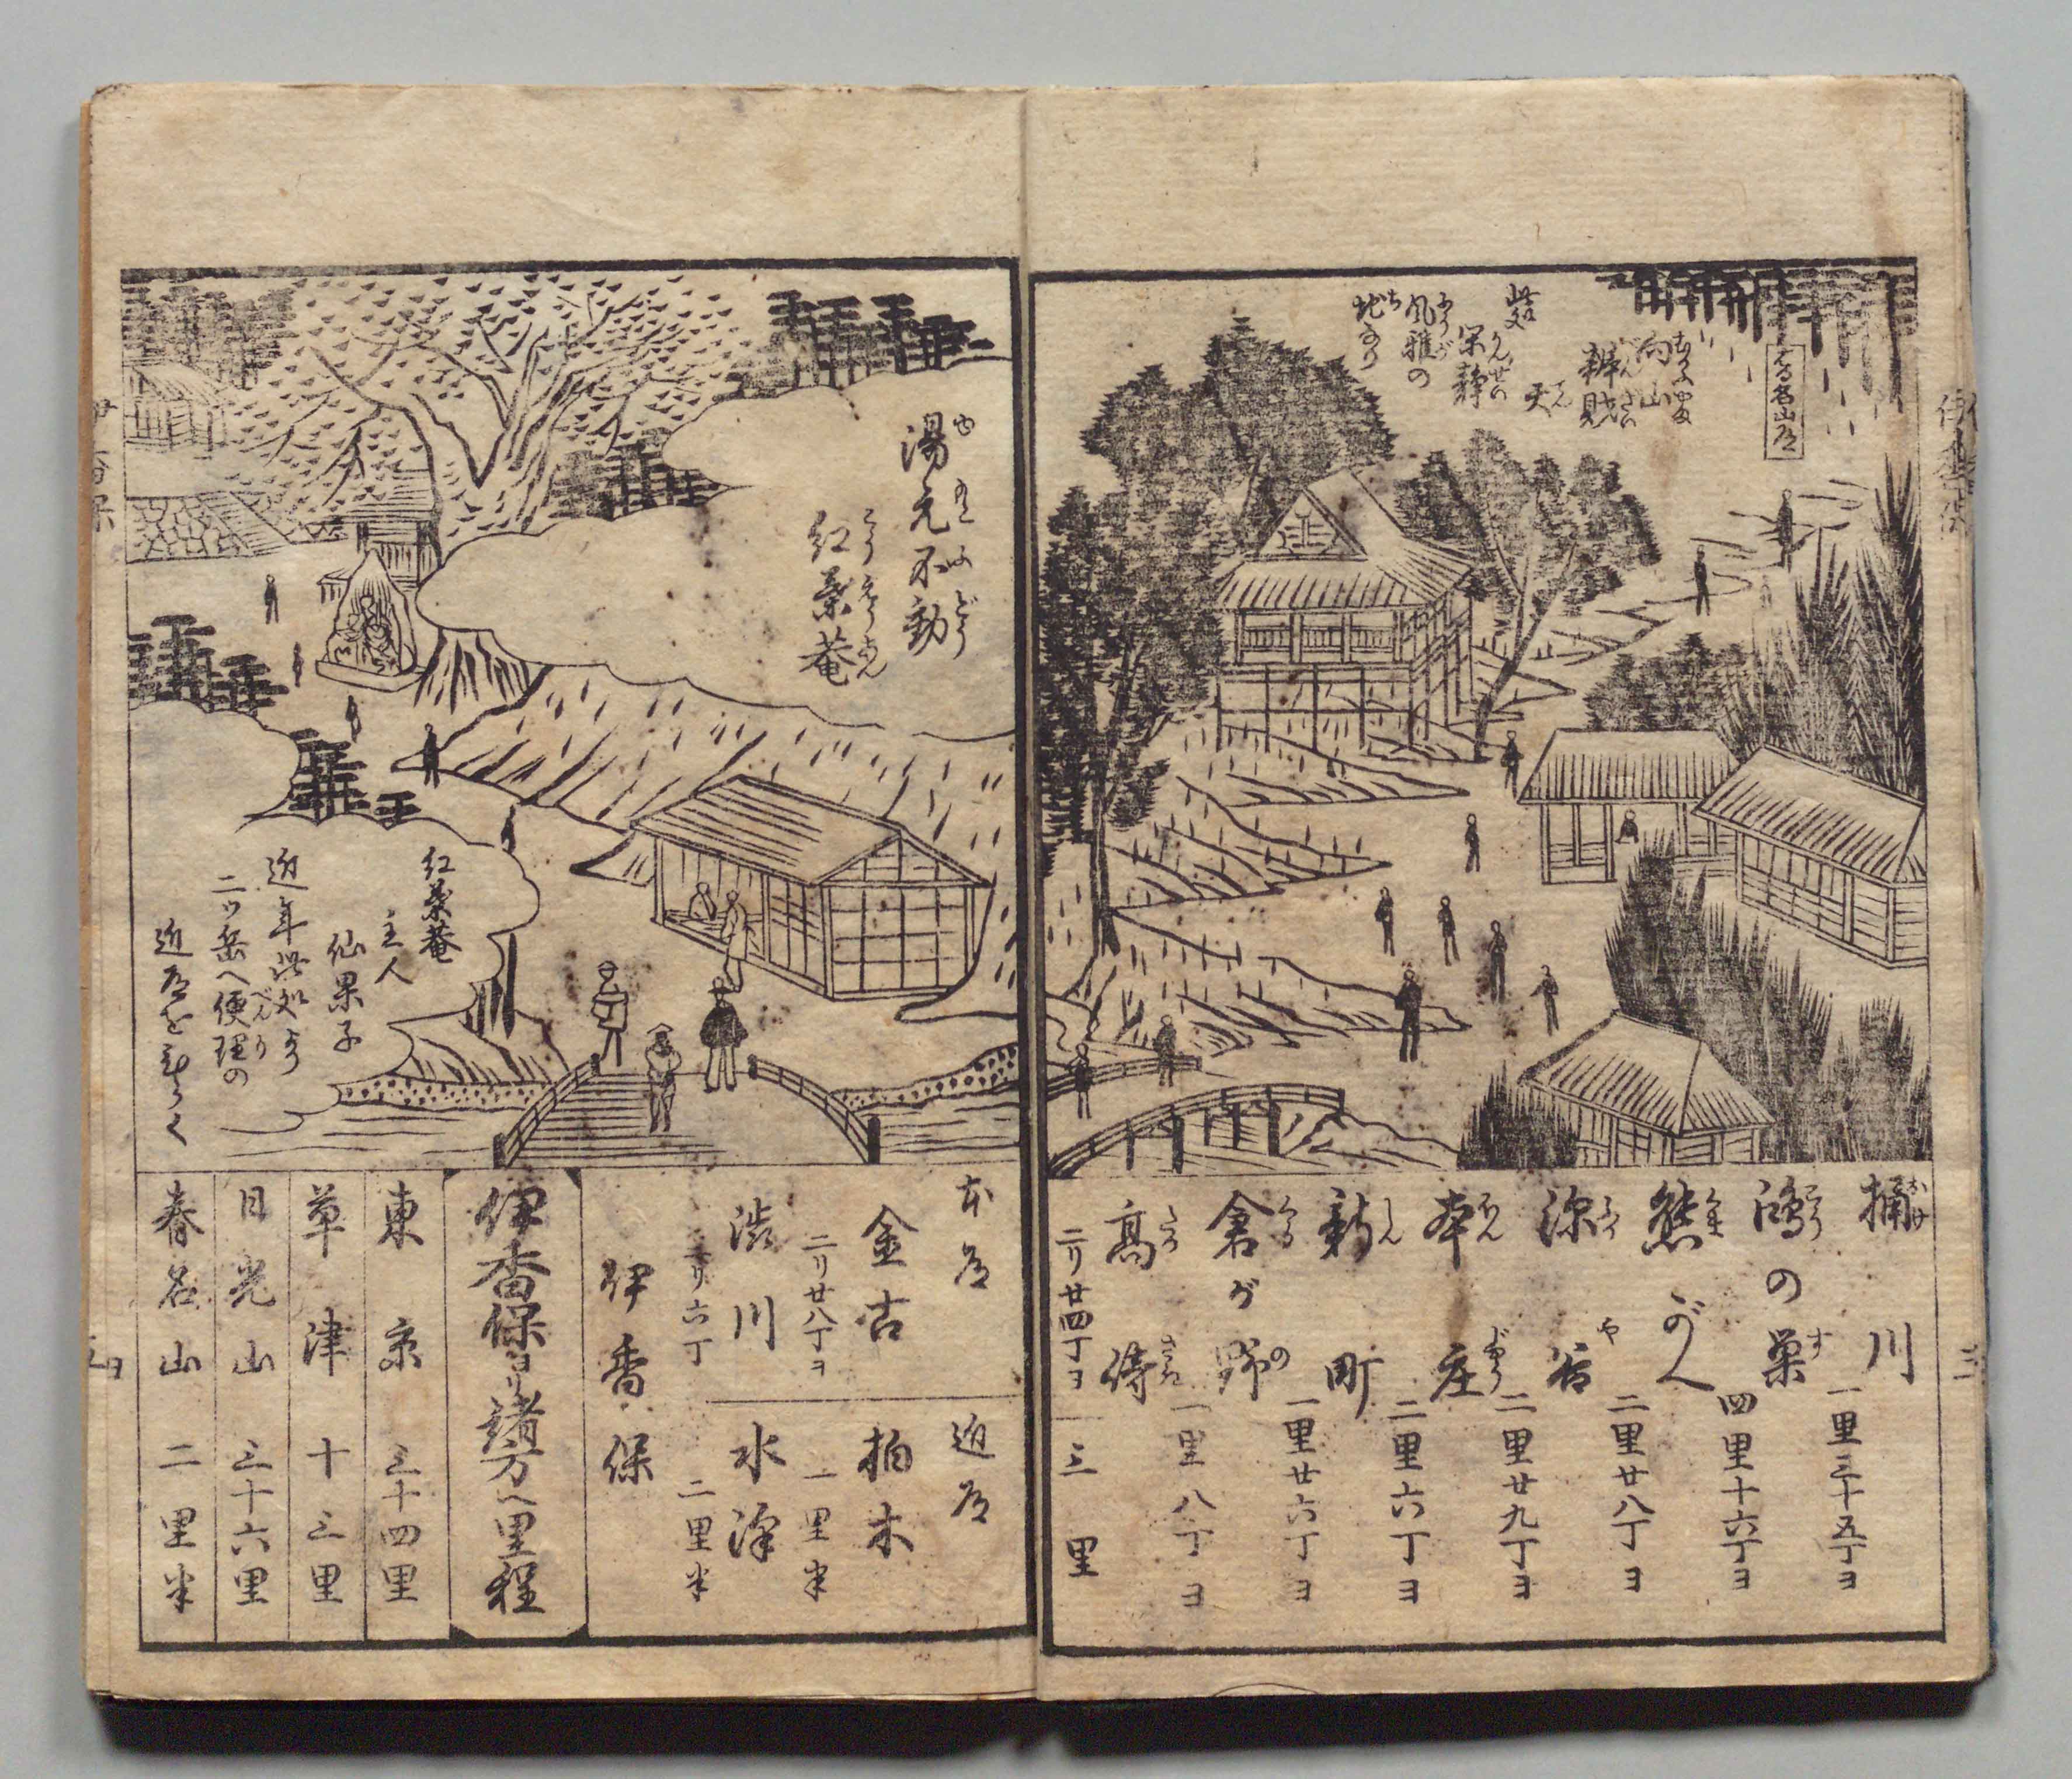 はる名山道
向山
むかふやま
辨財
べんざい
天
てん
此処
閑静
かんせい
風雅の
ふうが
地なり
ち
桶川
おけ
一里三十五丁ヨ
鴻の巣
こう す
四里十六丁ヨ
熊がへ
くま
二里廿八丁ヨ
深谷
ふか や
二里廿九丁ヨ
本庄
ほん じやう
二里六丁ヨ
新町
しん
一里廿六丁ヨ
倉が野
くら の
一里八丁ヨ
高崎
たか さき
二リ廿四丁ヨ
三里
湯元不動
ゆ もと ふ どう
紅葉菴
こうえうあん
紅葉菴
主人
仙果子
近年此処より
二ツ岳へ便理の
べんり
近道をひらく
本道
金古
二リ廿八丁ヨ
渋川
六丁
近道
柏木
一里半
水沢
二里半
伊香保
伊香保ヨリ諸方へ里程
東京 三十四里
草津 十三里
日光山 三十六里
春名山 二里半
伊香保